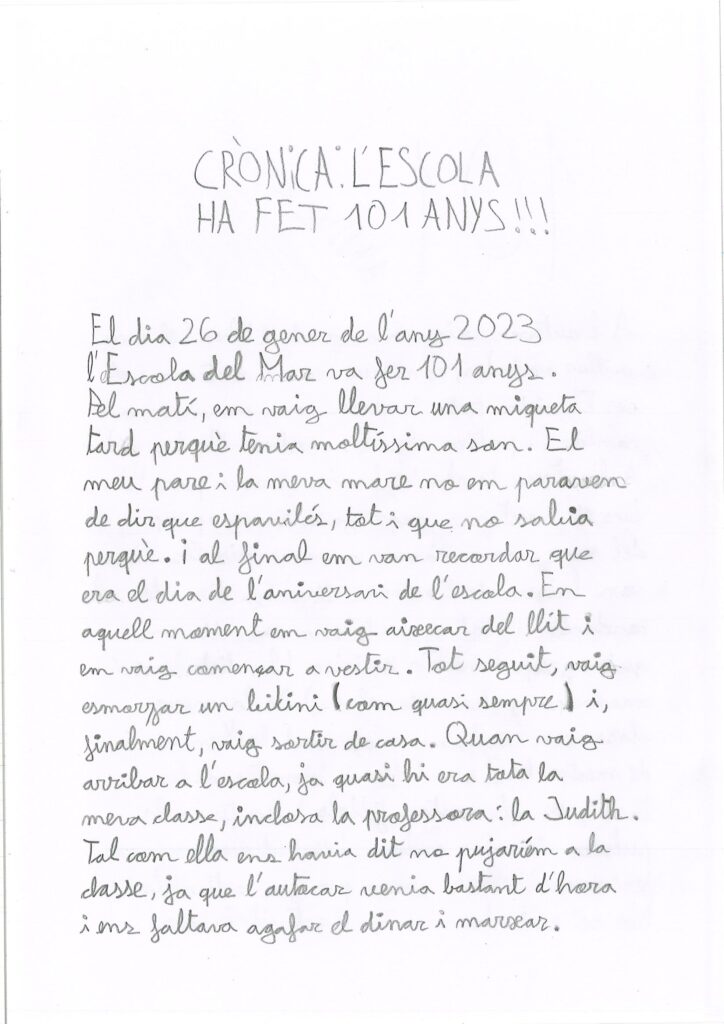 CRÒNiCA: L'ESCOLA
HA FET 101 ANYS!!!
El dia 26 de gener de l'any 2023
l'Escola del Mar va fer 101 anys.
Pel matí, em vaig llevar una miqueta
tard perquè tenia moltíssima son. El
meu pare i la meva mare no em paraven
de dir que espavilés, tot i que no sabia
perquè. i al final em van recordar que
era el dia de l'aniversari de l'escola. En
aquell moment em vaig aixecar del llit i
em vaig començar a vestir. Tot seguit, vaig
esmorzar un bikini (com quasi sempre) i,
finalment, vaig sortir de casa. Quan vaig
arribar a l'escola, ja quasi hi era tota la
meva classe, inclosa la professora: la Judith.
Tal com ella ens havia dit no pujariém a la
classe, ja que l'autocar venia bastant d'hora
i ens faltava agafar el dinar i marxar.